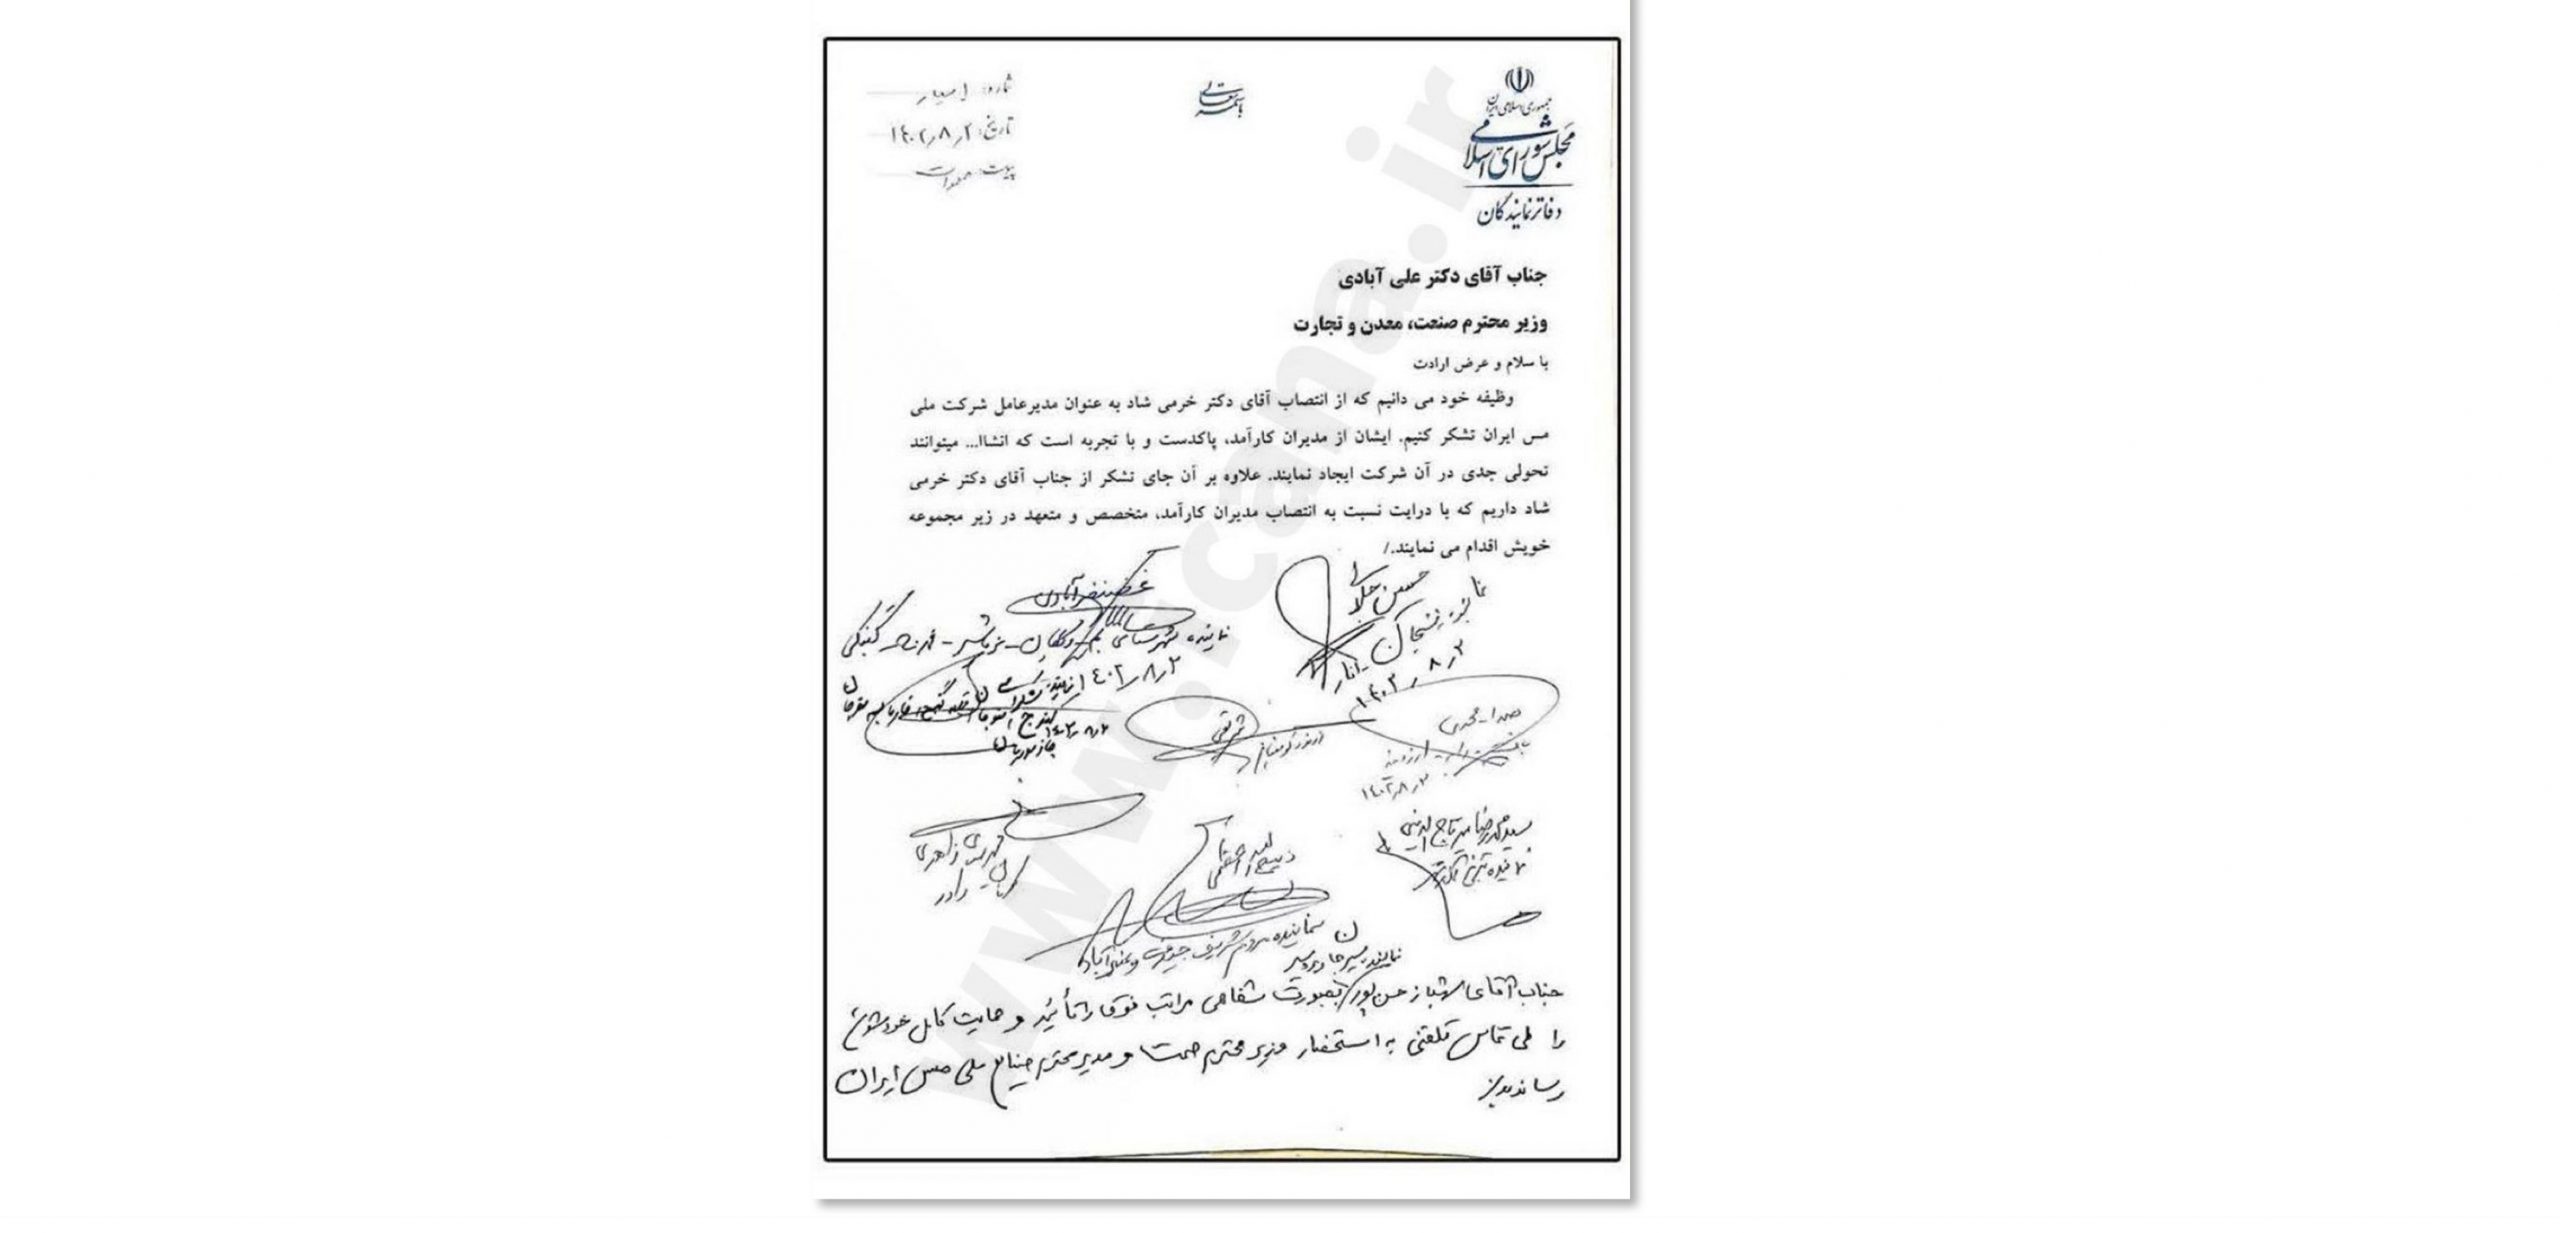 باسمه تعالی
جمهوری اسلامی ایران
مجلس شورای اسلامی
دفاتر نمایندگان
شماره:
تاریخ: ۱۴۰۲/۸/۲
پیوست:
جناب آقای دکتر علی آبادی
وزیر محترم صنعت، معدن و تجارت
با سلام و عرض ارادت
وظیفه خود می دانیم که از انتصاب آقای دکتر خرمی شاد به عنوان مدیرعامل شرکت ملی
مس ایران تشکر کنیم. ایشان از مدیران کارآمد، پاکدست و با تجربه است که انشاا... میتوانند
تحولی جدی در آن شرکت ایجاد نمایند. علاوه بر آن جای تشکر از جناب آقای دکتر خرمی
شاد داریم که با درایت نسبت به انتصاب مدیران کارآمد، متخصص و متعهد در زیر مجموعه
خویش اقدام می نمایند./
حسین جلالی
نماینده رفسنجان انار
غضنفرآبادی
نماینده شهرستانهای بم
۱۴۰۲/۸/۲
شرفی
صمدا محمدی
بافت رابر ارزوئیه
۱۴۰۲/۸/۲
سیدمحمدرضا میرتاج الدینی
نماینده تبریز
ذبیح اله اعظمی
نماینده مردم شریف جیرفت و عنبرآباد
مهدی زاهدی
کرمان راور
نماینده سیرجان و بردسیر
جناب آقای شهباز حسن پور بصورت شفاهی مراتب فوق را تأئید و حمایت کامل خودشون
را طی تماس تلفنی به استحضار وزیر محترم صمت و مدیر محترم صنایع ملی مس ایران
رساندند
www.ircana.ir